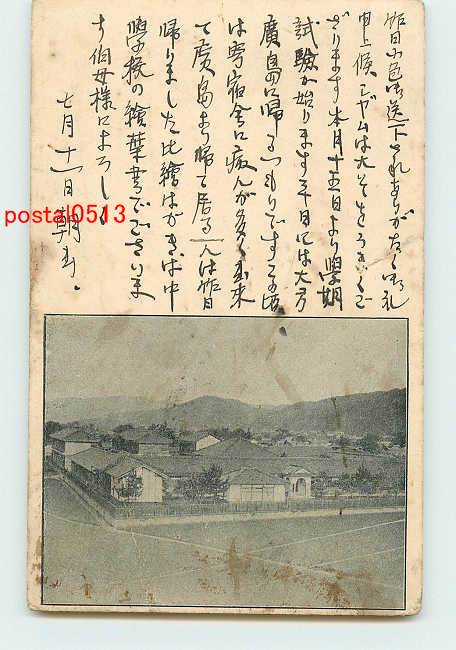 昨日小包御送下されありがたく御礼
申上候ゴザムは大そをろきくご
ざります本月十五日より学期
試験が始ります二十日には大方
廣島に帰るつもりですこの頃
は寄宿舎に病人が多く出来
て廣島より帰て居る人は昨日
帰りました此繪はがきは中
學校の繪葉書でございま
す伯母様によろしく
七月十一日朝
postal0513